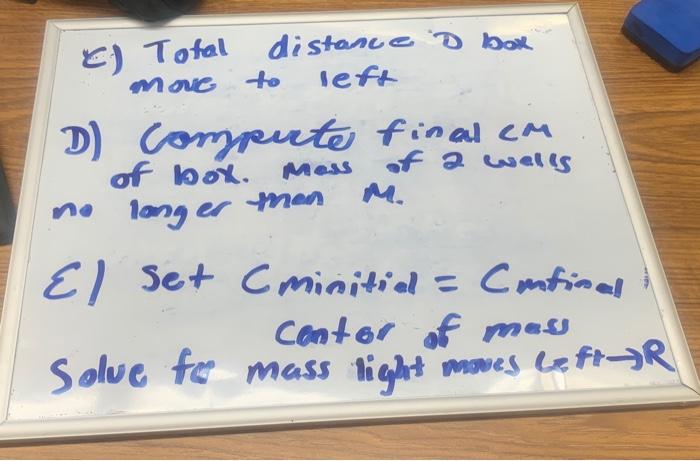 C) Total distance D box
move to left
D) Compute final CM
of box. Mass of 2 walls
no longer than M.
E) Set Cminitial = Cmfinal
Center of mass
Solve for mass light moves Left→R